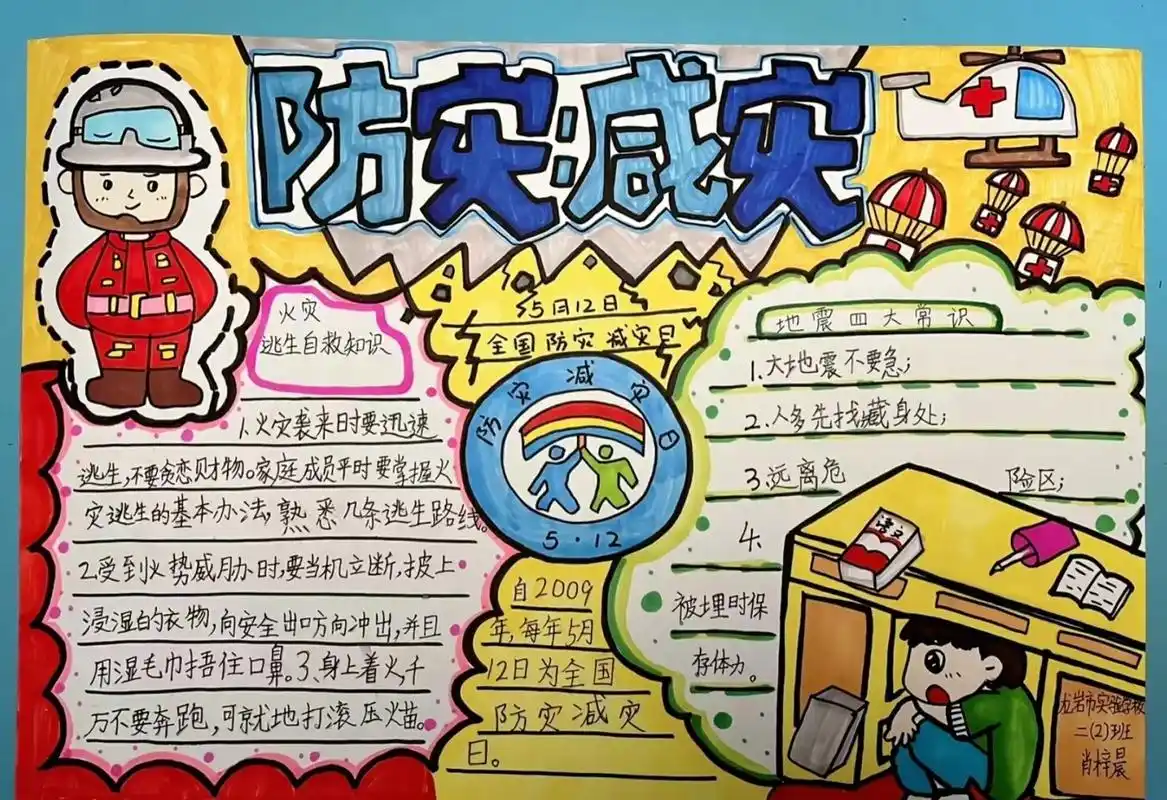 防灾减灾
火灾
逃生自救知识
1.火灾袭来时要迅速
逃生,不要贪恋财物。家庭成员平时要掌握火
灾逃生的基本办法,熟悉几条逃生路线。
2.受到火势威胁时,要当机立断,披上
浸湿的衣物,向安全出口方向冲出,并且
用湿毛巾捂住口鼻。3、身上着火,千
万不要奔跑,可就地打滚压火苗。
5月12日
全国防灾减灾日
防灾减灾日
5·12
自2009
年,每年5月
12日为全国
防灾减灾
日。
地震四大常识
1.大地震不要急;
2.人多先找藏身处;
3.远离危险区;
4、
被埋时保
存体力。
语文
龙岩市实验学校
二(2)班
肖梓晨